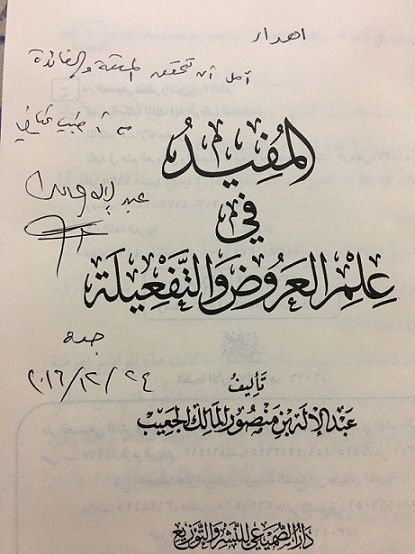 اهداء
آمل أن تتحقق المتعة والفائدة
مع أطيب تحياتي
المُفِيدُ
عبدالإله
فِي
عِلْمِ العَرُوضِ وَالتَّفْعِيلَةِ
جدة
٢٠١٦/١٢/٢٤
تَأليفُ
عَبْدِ الإِلَهِ بْنِ مَنْصُور المَالِك الحَبِيب
دَارُ الصُّمَيْعِي لِلنَّشْرِ وَالتَّوْزِيعِ